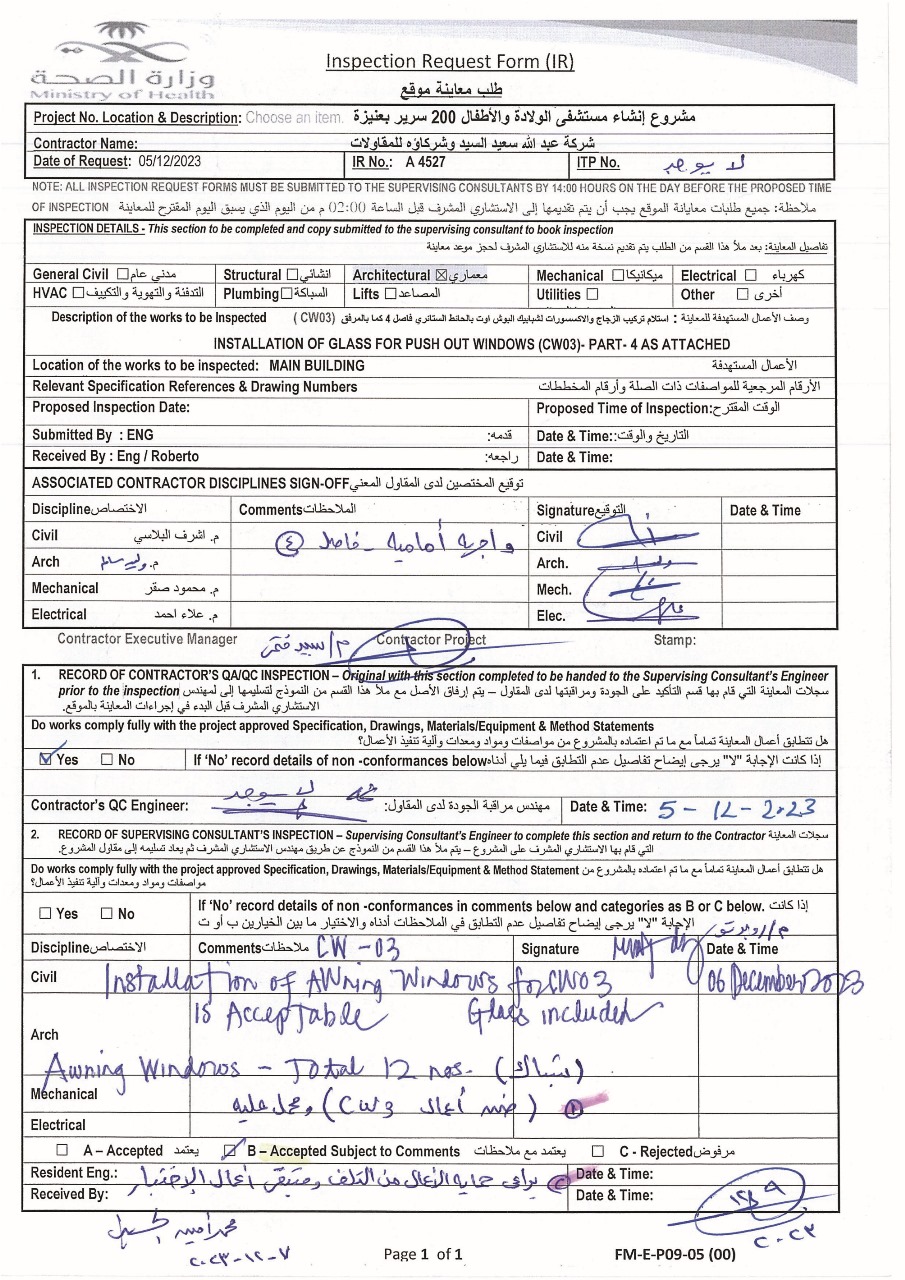 وزارة الصحة
Ministry of Health
Inspection Request Form (IR)
طلب معاينة موقع
Project No. Location & Description: Choose an item. مشروع إنشاء مستشفى الولادة والأطفال 200 سرير بعنيزة
Contractor Name: شركة عبد الله سعيد السيد وشركاؤه للمقاولات
Date of Request: 05/12/2023 IR No.: A 4527 ITP No. لا يوجد
NOTE: ALL INSPECTION REQUEST FORMS MUST BE SUBMITTED TO THE SUPERVISING CONSULTANTS BY 14:00 HOURS ON THE DAY BEFORE THE PROPOSED TIME
OF INSPECTION ملاحظة: جميع طلبات معاينة الموقع يجب أن يتم تقديمها إلى الاستشاري المشرف قبل الساعة 02:00 م من اليوم الذي يسبق اليوم المقترح للمعاينة
INSPECTION DETAILS - This section to be completed and copy submitted to the supervising consultant to book inspection
تفاصيل المعاينة: بعد ملأ هذا القسم من الطلب يتم تقديم نسخة منه للاستشاري المشرف لحجز موعد معاينة
General Civil ☐ مدني عام Structural ☐ انشائي Architectural ☒ معماري Mechanical ☐ ميكانيكا Electrical ☐ كهرباء
HVAC ☐ التدفئة والتهوية والتكييف Plumbing ☐ السباكة Lifts ☐ المصاعد Utilities ☐ Other ☐ أخرى
Description of the works to be Inspected وصف الأعمال المستهدفة للمعاينة : استلام تركيب الزجاج والاكسسورات لشبابيك البوش اوت بالحائط الستائري فاصل 4 كما بالمرفق (CW03 )
INSTALLATION OF GLASS FOR PUSH OUT WINDOWS (CW03)- PART- 4 AS ATTACHED
Location of the works to be inspected: MAIN BUILDING الأعمال المستهدفة
Relevant Specification References & Drawing Numbers الأرقام المرجعية للمواصفات ذات الصلة وأرقام المخططات
Proposed Inspection Date: Proposed Time of Inspection: الوقت المقترح
Submitted By : ENG قدمه: Date & Time:: التاريخ والوقت
Received By : Eng / Roberto راجعه: Date & Time:
ASSOCIATED CONTRACTOR DISCIPLINES SIGN-OFF توقيع المختصين لدى المقاول المعني
Discipline الاختصاص Comments الملاحظات Signature التوقيع Date & Time
Civil م. اشرف البلاسي واجهه أمامية - فاصل ٤ Civil
Arch م. Arch.
Mechanical م. محمود صقر Mech.
Electrical م. علاء احمد Elec.
Contractor Executive Manager Contractor Project Stamp:
1. RECORD OF CONTRACTOR'S QA/QC INSPECTION – Original with this section completed to be handed to the Supervising Consultant's Engineer
prior to the inspection سجلات المعاينة التي قام بها قسم التأكيد على الجودة ومراقبتها لدى المقاول – يتم إرفاق الأصل مع ملأ هذا القسم من النموذج لتسليمها إلى لمهندس
الاستشاري المشرف قبل البدء في إجراءات المعاينة بالموقع.
Do works comply fully with the project approved Specification, Drawings, Materials/Equipment & Method Statements
هل تتطابق أعمال المعاينة تماماً مع ما تم اعتماده بالمشروع من مواصفات ومواد ومعدات وآلية تنفيذ الأعمال؟
☑ Yes ☐ No If 'No' record details of non -conformances below إذا كانت الإجابة "لا" يرجى إيضاح تفاصيل عدم التطابق فيما يلي أدناه
لا يوجد
Contractor's QC Engineer: مهندس مراقبة الجودة لدى المقاول: Date & Time: 5 - 12 - 2023
2. RECORD OF SUPERVISING CONSULTANT'S INSPECTION – Supervising Consultant's Engineer to complete this section and return to the Contractor سجلات المعاينة
التي قام بها الاستشاري المشرف على المشروع – يتم ملأ هذا القسم من النموذج عن طريق مهندس الاستشاري المشرف ثم يعاد تسليمه إلى مقاول المشروع.
Do works comply fully with the project approved Specification, Drawings, Materials/Equipment & Method Statement هل تتطابق أعمال المعاينة تماماً مع ما تم اعتماده بالمشروع من
مواصفات ومواد ومعدات وآلية تنفيذ الأعمال؟
☐ Yes ☐ No If 'No' record details of non -conformances in comments below and categories as B or C below. إذا كانت
الإجابة "لا" يرجى إيضاح تفاصيل عدم التطابق في الملاحظات أدناه والاختيار ما بين الخيارين ب أو ت م/روبرتو
Discipline الاختصاص Comments ملاحظات CW -03 Signature Date & Time
Civil Installation of AWning Windows for CW03 06 December 2023
is Acceptable Glass included
Arch
Awning Windows - Total 12 nos. (شباك)
Mechanical (ضمن أعمال CW3) ومحمل عليه
Electrical
☐ A – Accepted يعتمد ☑ B – Accepted Subject to Comments يعتمد مع ملاحظات ☐ C - Rejected مرفوض
Resident Eng.: يراعى حماية الأعمال من التلف ومتبقى أعمال الإختبار Date & Time:
Received By: Date & Time: ١٢/٩
٢٠٢٣
٢٠٢٣-١٢-٧
Page 1 of 1 FM-E-P09-05 (00)